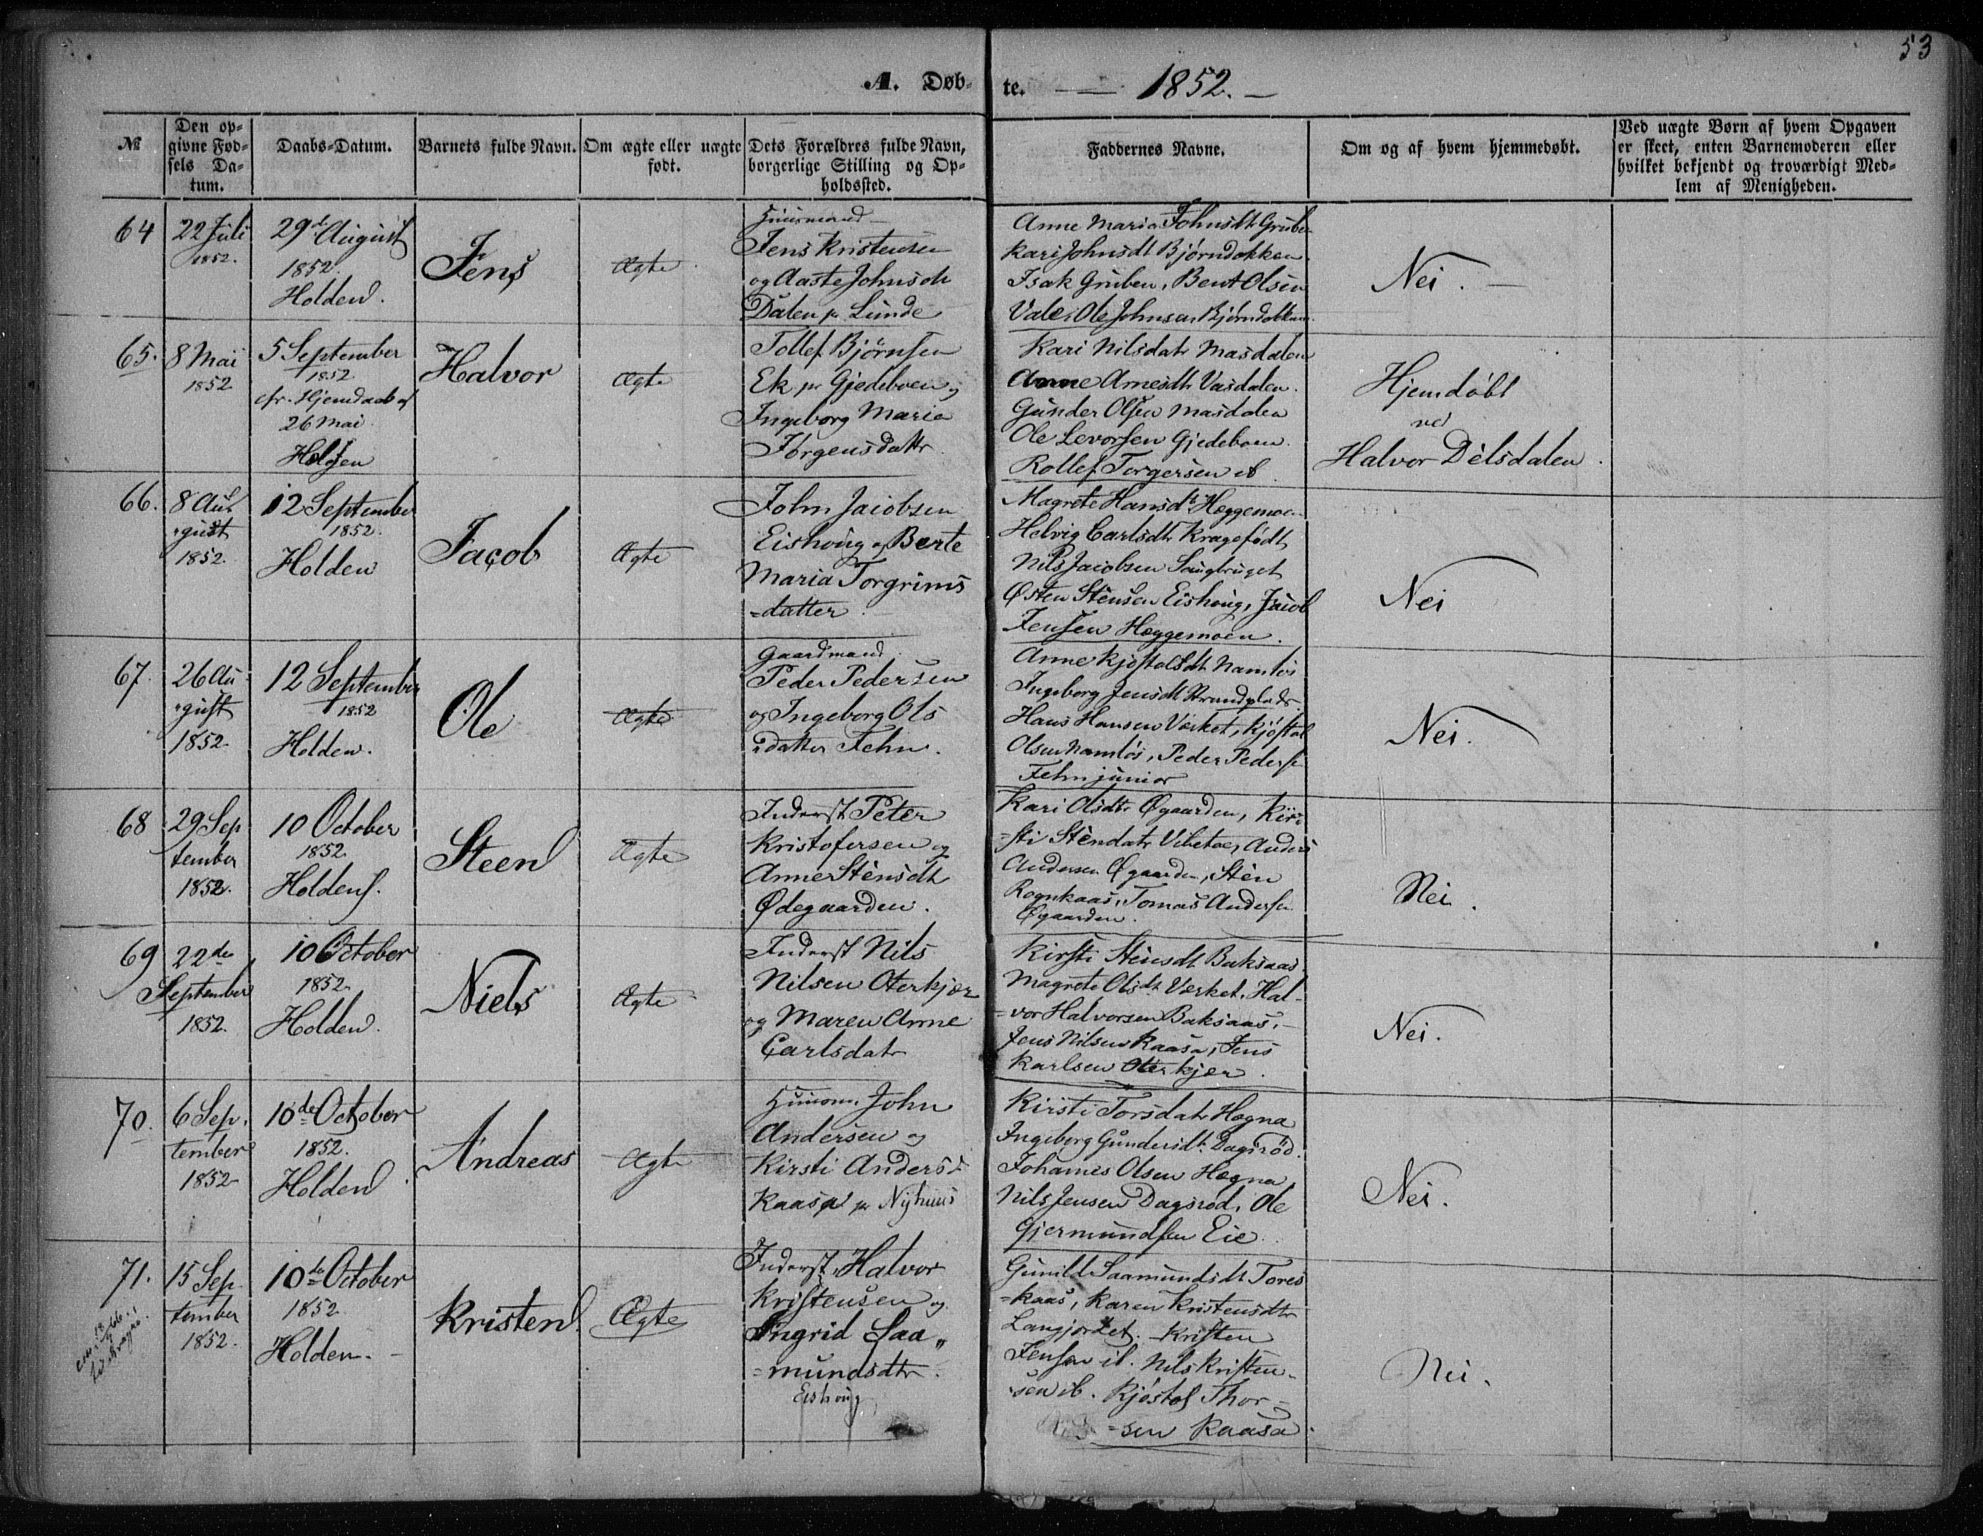 53
A. Døb-
te. 1852.
№
Den op-
givne Fød-
sels Da-
tum.
Daabs-Datum.
Barnets fulde Navn.
Om ægte eller uægte
født.
Dets Forældres fulde Navn,
borgerlige Stilling og Op-
holdssted.
Faddernes Navne.
Om og af hvem hjemmedøbt.
Ved uægte Børn af hvem Opgaven
er skeet, enten Barnemoderen eller
hvilket bekjendt og troværdigt Med-
lem af Menigheden.
64
22 Juli
1852.
29de August
1852.
Holden.
Jens
Ægte
Huusmand
Jens Kristensen
og Aaste Johnsdt
Dalen p. Lunde
Anne Maria Johnsdt Gruben
Kari Johnsdt Bjørndokken
Isak Gruben, Bent Olsen
Vale, Ole Johnsen Bjørndokken.
Nei.
65.
8 Mai
1852
5 September
1852
cfr. Hjemdaab af
26 Mai
Holden
Halvor
Ægte
Tollef Bjørnsen
Ek p. Gjedeboen og
Ingeborg Maria
Jørgensdattr
Kari Nilsdatr Masdalen
Anne Arnesdtr Vasdalen.
Gunder Olsen Masdalen
Ole Levorsen Gjedeboen.
Rollef Torgersen ib.
Hjemdøbt
ved
Halvor Delsdalen.
66.
8 Au-
gust
1852.
12 September
1852.
Holden
Jacob
Ægte
John Jacobsen
Eishoug og Berte
Maria Torgrims
=datter.
Magrete Hansdt Heggemoen
Helvig Carlsdtr Kragefødt
Nils Jacobsen Saugbruget
Østen Stensen Eishoug, Jacob
Jensen Heggemoen.
Nei
67.
26 Au-
gust
1852.
12 September
1852
Holden.
Ole
Ægte
Gaardmand
Peder Pedersen
og Ingeborg Ols
=datter Fehn.
Anne Kjøstolsdt Namløs
Ingeborg Jensdt Strandplads.
Hans Hansen Værket, Kjøstol
Olsen Namløs, Peder Peders.
Fehn junior
Nei.
68
29 Sep
tember
1852.
10 October
1852.
Holden.
Steen
Ægte
Inderst Peter
Kristofersen og
Anne Stensdt
Ødegaarden.
Kari Olsdtr Øgaarden, Kir
=sti Stendatr Vibetoe, Anders
Andersen Øgaarden, Sten
Rognkaas, Tomas Anderse
Øgaarden.
Nei.
69
22de
September
1852.
10 October
1852.
Holden.
Niels
Ægte
Inderst Nils
Nilsen Oterkjær
og Maren Anne
Carlsdatr
Kirsti Stensdt Baksaas
Magrete Olsdt Værket. Hal-
=vor Halvorsen Baksaas,
Jens Nilsen Kaasa, Jens
Karlsen Oterkjær.
Nei.
70.
6 Sep.
tember
1852
10de October
1852.
Holden
Andreas
Ægte
Huusm. John
Andersen og
Kirsti Andersd
Kaasa p. Nyhuus
Kirsti Torsdatr Hægna
Ingeborg Gundersdt. Dagsrød.
Johanes Olsen Hægna
Nils Jensen Dagsrød. Ole
Gjermundsen Eie.
Nei.
71.
15 Sep-
tember
1852.
10de October
1852.
Holden.
Kristen
Ægte
Inderst Halvor
Kristensen og
Ingrid Saa„
=mundsdtr
Eishoug
Gunild Saamundsdt Tores
=kaas, Karen Kristensdtr
Langjordet. Kristen
Jensen ib. Nils Kristen-
sen ib. Kjøstol Thor-
=sen Kaasa.
Nei.